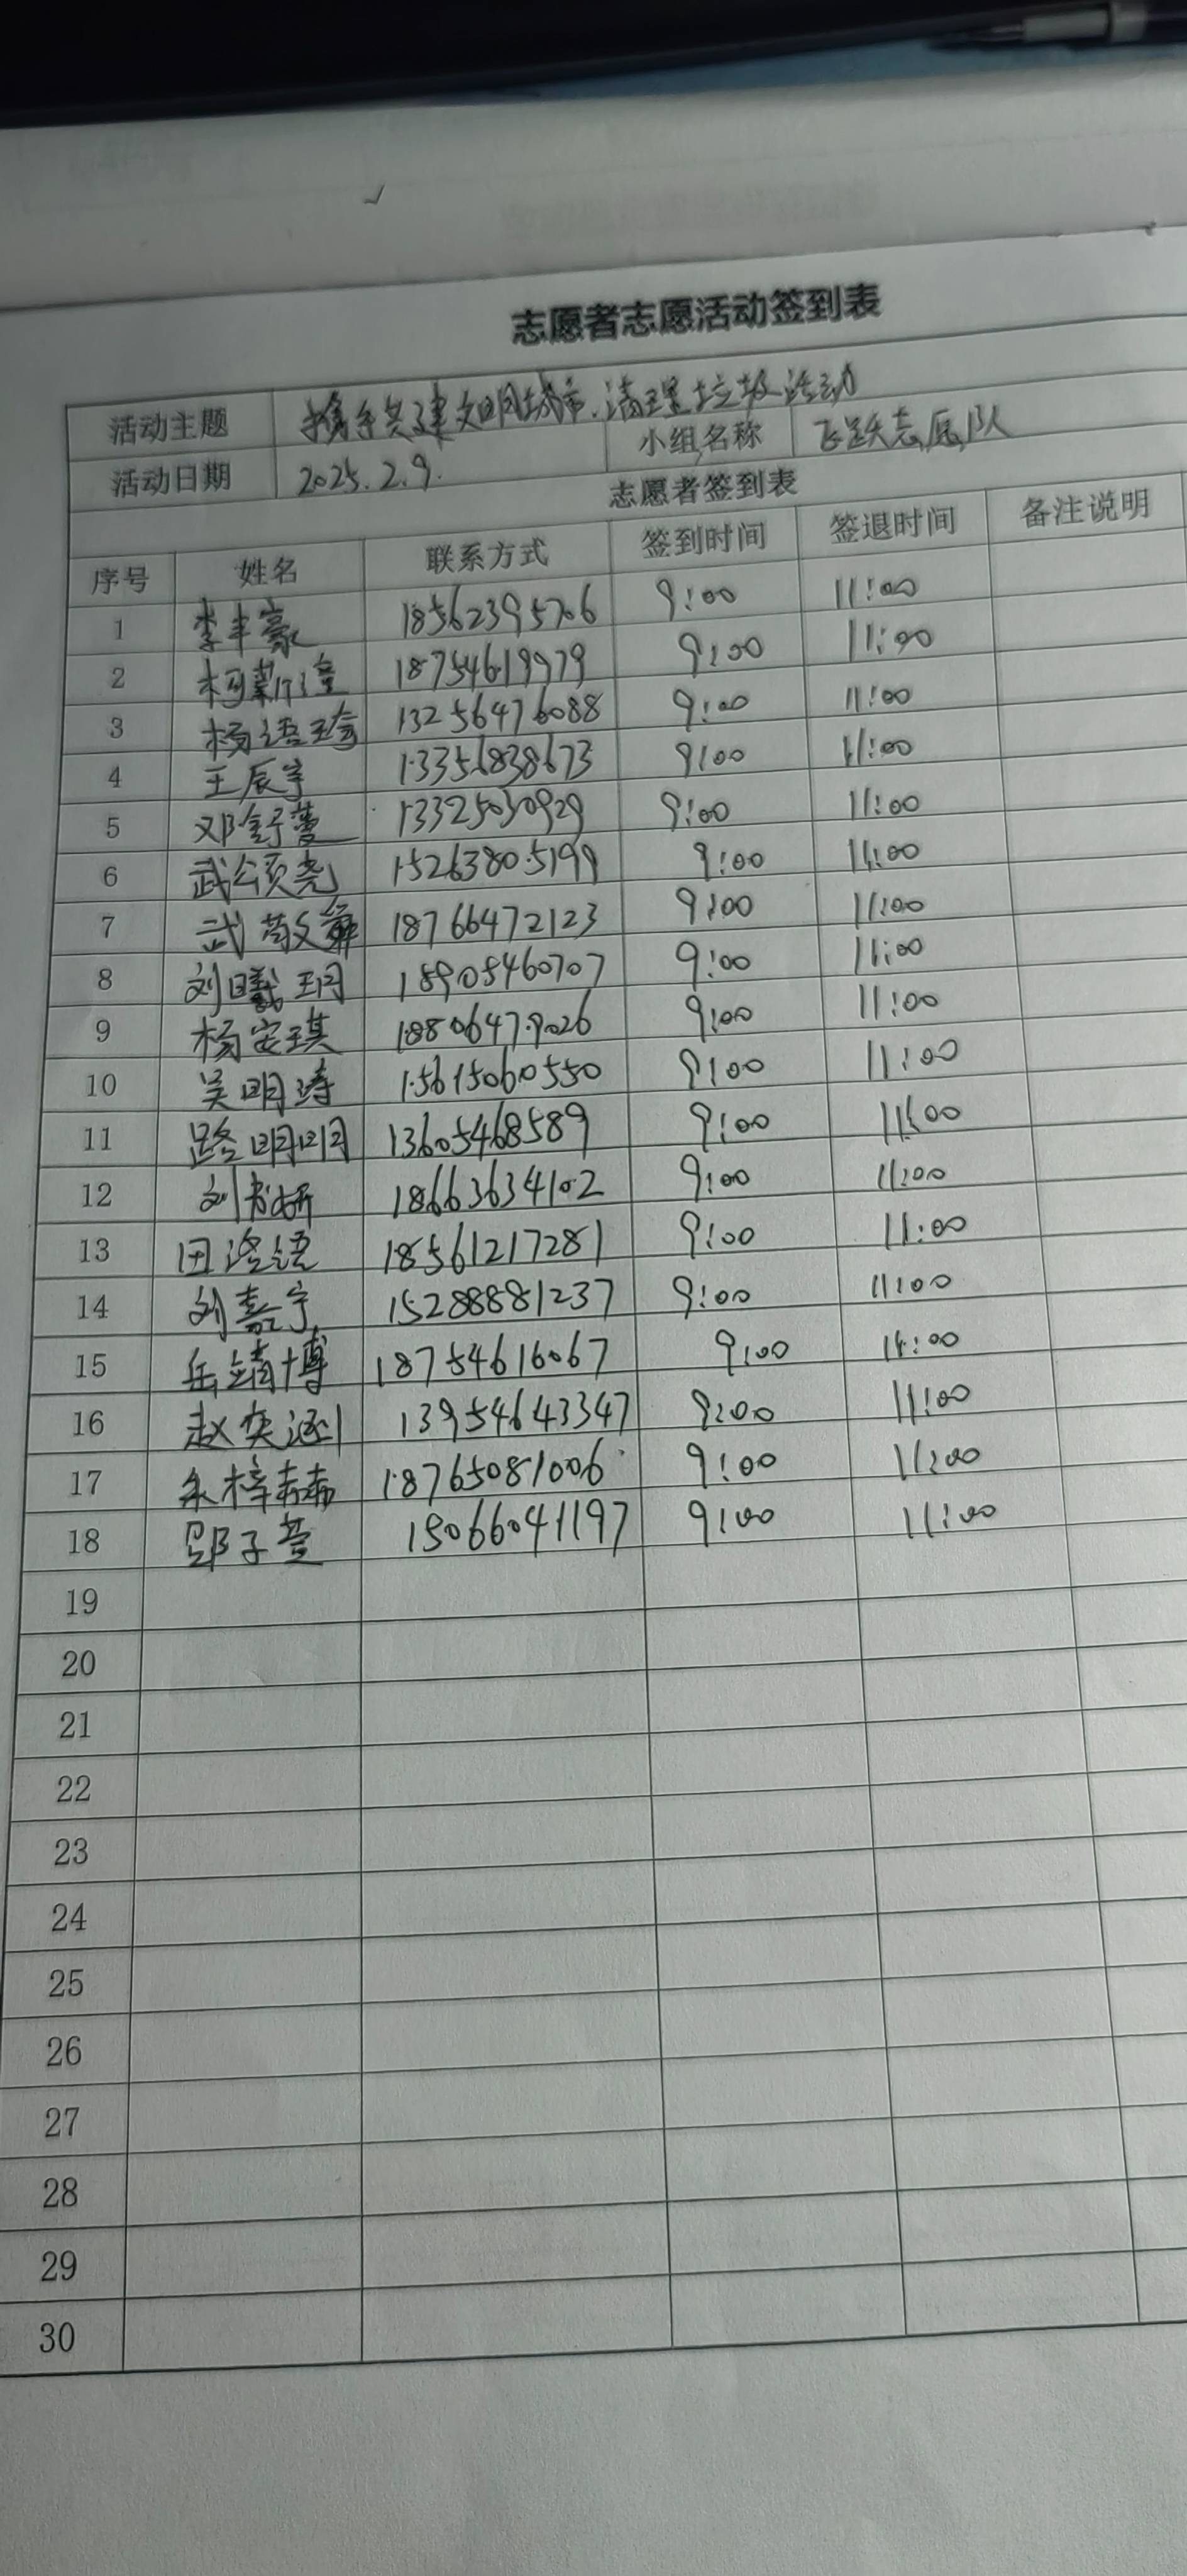 志愿者志愿活动签到表
活动主题 携手共建文明城市.清理垃圾活动
活动日期 2025.2.9. 小组名称 飞跃志愿队
志愿者签到表
序号 姓名 联系方式 签到时间 签退时间 备注说明
1 李丰豪 18562395706 9:00 11:00
2 18754619979 9:00 11:00
3 杨语瑄 13256476088 9:00 11:00
4 王辰宇 13356838673 9:00 11:00
5 邓舒蔓 13325030929 9:00 11:00
6 武颂尧 15263805199 9:00 11:00
7 武 18766472123 9:00 11:00
8 刘曦玥 18905460707 9:00 11:00
9 杨安琪 18806479026 9:00 11:00
10 吴明涛 15615060550 9:00 11:00
11 路明明 13605468589 9:00 11:00
12 刘书妍 18663634102 9:00 11:00
13 田洺语 18561217281 9:00 11:00
14 刘嘉宇 15288881237 9:00 11:00
15 岳靖博 18754616067 9:00 11:00
16 赵奕涵 13954643347 9:00 11:00
17 18765081006 9:00 11:00
18 15066041197 9:00 11:00
19
20
21
22
23
24
25
26
27
28
29
30